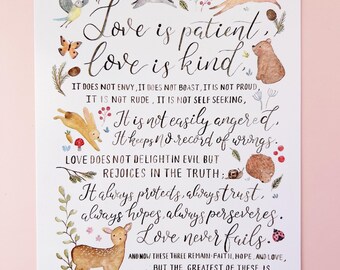 Love is patient,
love is kind,
IT DOES NOT ENVY, IT DOES NOT BOAST, IT IS NOT PROUD,
IT IS NOT RUDE, IT IS NOT SELF SEEKING,
It is not easily angered,
It keeps no record of wrongs.
LOVE DOES NOT DELIGHT IN EVIL BUT
REJOICES IN THE TRUTH;
It always protects, always trust,
always hopes, always perseveres.
Love never fails.
AND NOW THESE THREE REMAIN: FAITH, HOPE, AND LOVE,
BUT THE GREATEST OF THESE IS